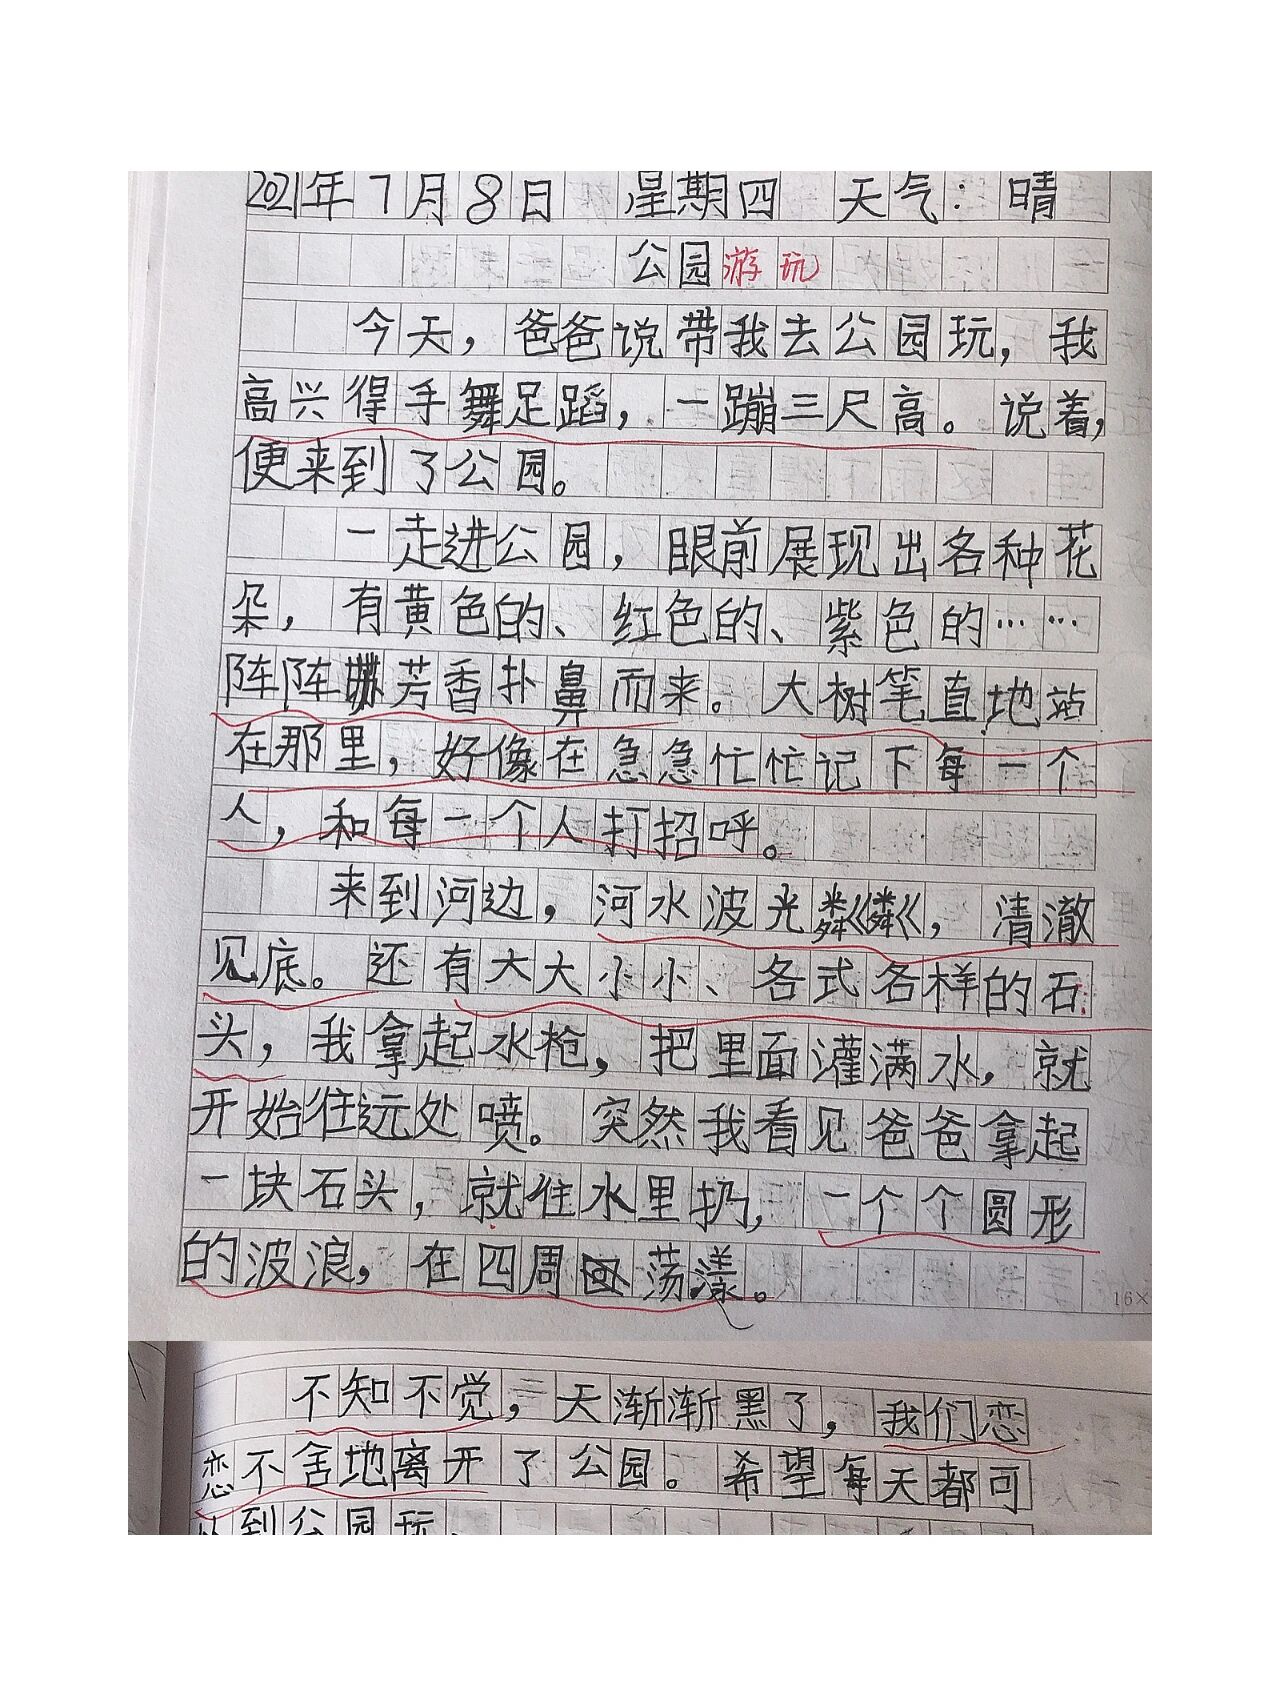 2021年7月8日 星期四 天气：晴
公园游玩
今天，爸爸说带我去公园玩，我
高兴得手舞足蹈，一蹦三尺高。说着，
便来到了公园。
一走进公园，眼前展现出各种花
朵，有黄色的、红色的、紫色的……
阵阵芳香扑鼻而来。大树笔直地站
在那里，好像在急急忙忙记下每一个
人，和每一个人打招呼。
来到河边，河水波光粼粼，清澈
见底。还有大大小小、各式各样的石
头，我拿起水枪，把里面灌满水，就
开始往远处喷。突然我看见爸爸拿起
一块石头，就住水里扔，一个个圆形
的波浪，在四周荡漾。
16×
不知不觉，天渐渐黑了，我们恋
恋不舍地离开了公园。希望每天都可
以到公园玩